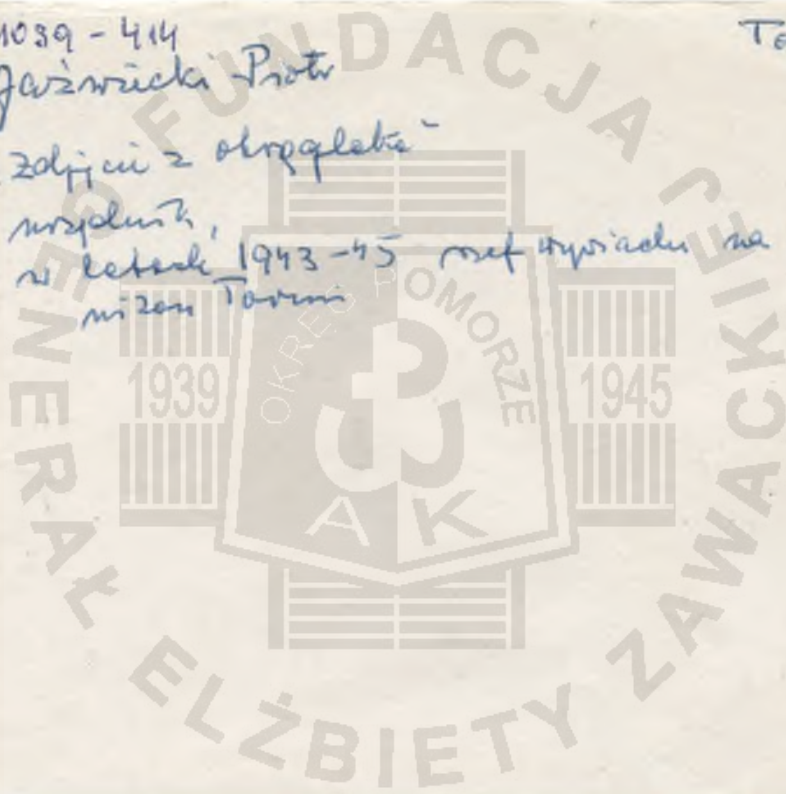 1039 - 414
To
Jaźwiecki Piotr
Zdjęcie z okrąglaka
w latach 1943-45 szef wywiadu na
Toruń
FUNDACJA GENERAŁ ELŻBIETY ZAWACKIEJ
OKRĘG POMORZE
1939
1945
AK